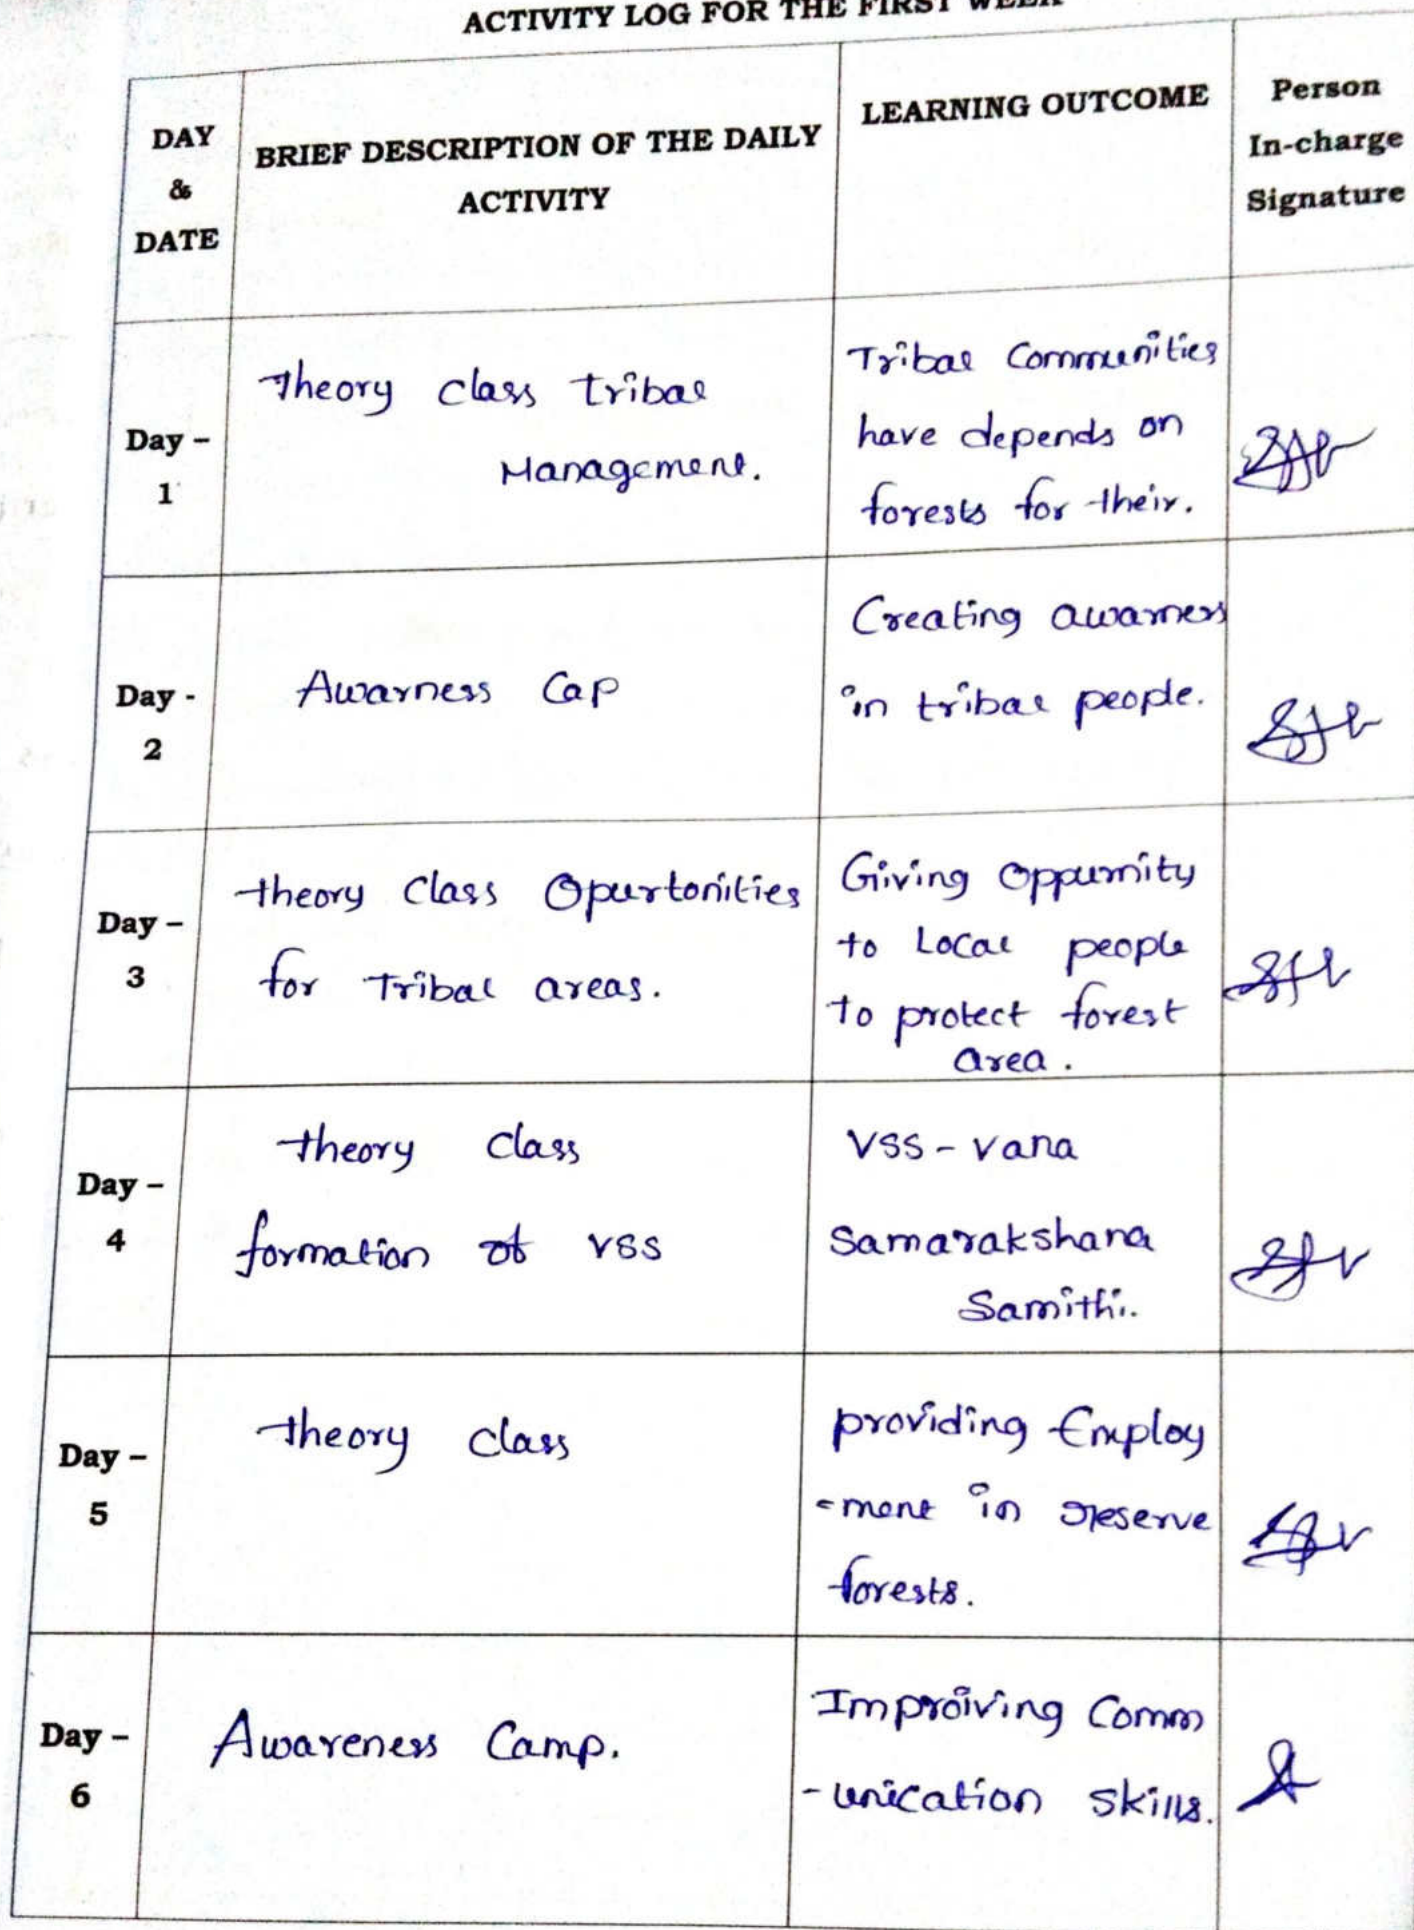 ACTIVITY LOG FOR THE FIRST WEEK
DAY
&
DATE
BRIEF DESCRIPTION OF THE DAILY
ACTIVITY
LEARNING OUTCOME
Person
In-charge
Signature
Day –
1
Theory class tribal
Management.
Tribal Communities
have depends on
forests for their.
Day -
2
Awarness Cap
Creating awarness
in tribal people.
Day –
3
theory Class Opurtonities
for Tribal areas.
Giving Oppurnity
to Local people
to protect forest
area.
Day –
4
theory class
formation of VSS
VSS - vana
Samarakshana
Samithi.
Day –
5
theory class
providing Employ
-ment in reserve
forests.
Day –
6
Awareness Camp.
Improiving Comm
-unication skills.